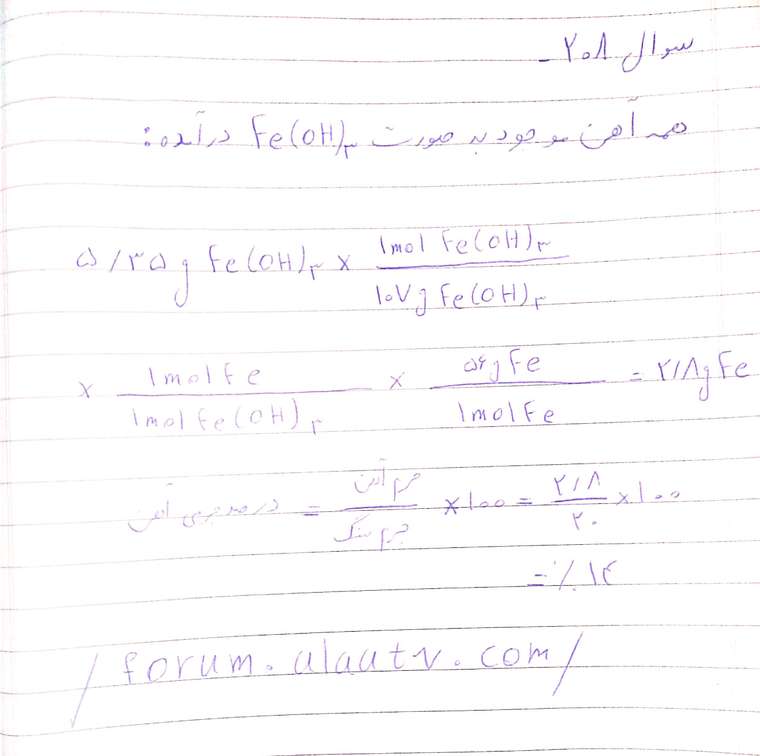 سوال ۲۰۸ -
همه آهن موجود به صورت Fe(OH)۳ درآمده:
۵/۳۵ g Fe(OH)۳ × 1mol Fe(OH)۳ / ۱۰۷ g Fe(OH)۳
× 1mol Fe / 1mol Fe(OH)۳ × ۵۶ g Fe / 1mol Fe = ۲/۸ g Fe
درصد جرمی آهن = جرم آهن / جرم سنگ × ۱۰۰ = ۲/۸ / ۲۰ × ۱۰۰
= ٪ ۱۴
/ forum.alaatv.com /